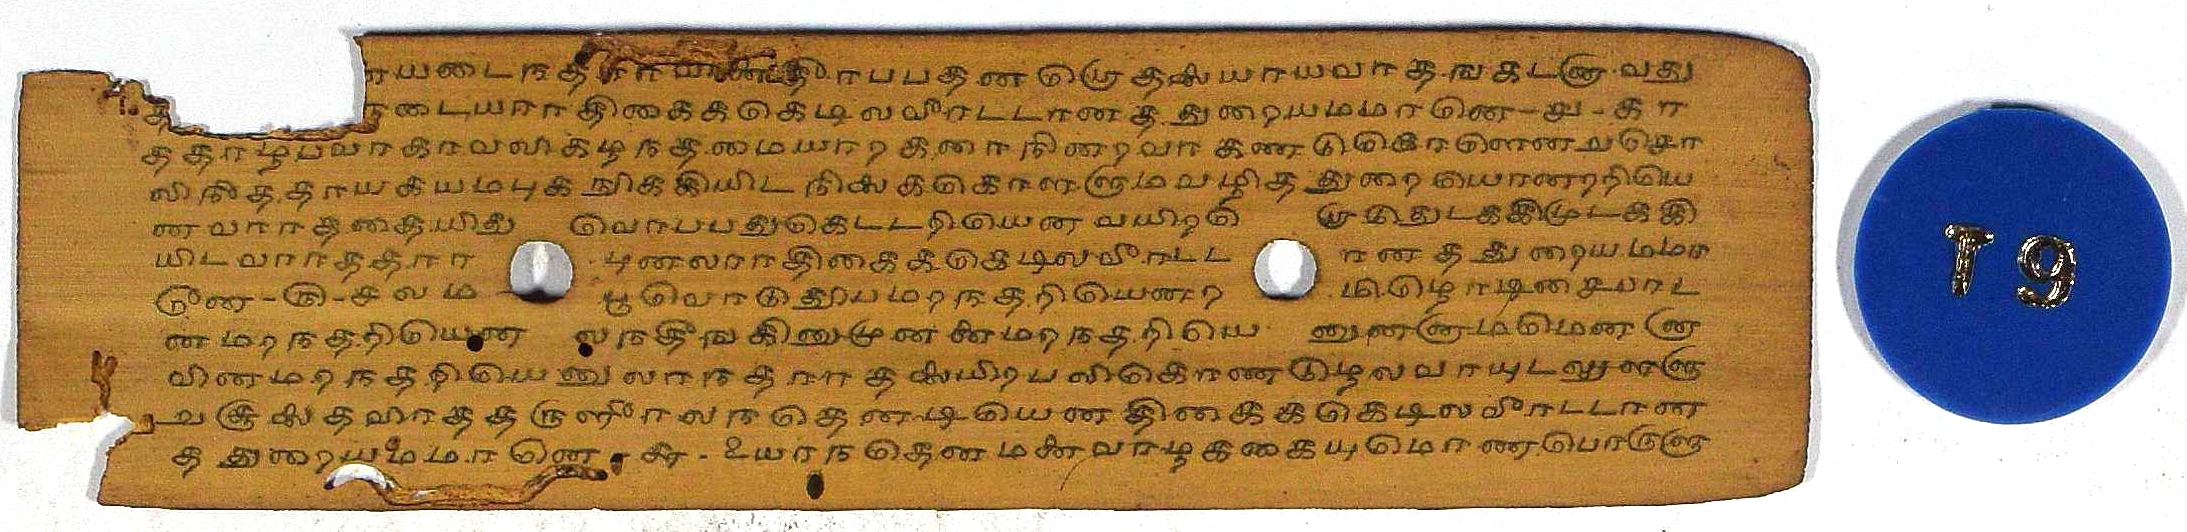 ாயடைநத
த டையாரதிகைககெடிலவீரடடானத துறையமமானெ-உ-கா
ததாழபவரகாவலிகழநதமையாற கரைநினறவர கணடுகொளெனறுசொ
லிநீததாயகயமபுக நூககியிட நிலைககொளளுமவழித துறையொனறறியெ
னவாரததையிது வொபபதுகெடடறியென வயிறறொ டுதுடககிமுடககி
யிடவாரததரா புனலாரதிகைககெடிலவீரடட ானத துறையமமா
னெ-ரு-சலம பூவொடுதூபமறநதறியென த மிழொடிசைபாட
லமறநதறியென லநதீஙகிலுமுனனைமறநதறியெ னுனனாமமென னா
விலமறநதறியெ னுலநதார தலையிறபலிகொணடுழலவாயுடலுளளு
றுசூலைதவிரததருளாயலநதெனடியெனதிகைககெடிலவீரடடான
த துறையமமானெ-சு-உயரநதெனமனைவாழககையுமொணபொருளு
T 9